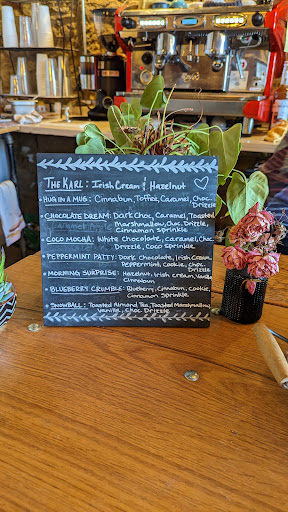 THE KARL: Irish Cream & Hazelnut
HUG IN A MUG: Cinnabun, Toffee, Caramel, Choc. Drizzle
CHOCOLATE DREAM: Dark Choc, Caramel, Toasted
Marshmallow, Choc. Drizzle,
Cinnamon Sprinkle
COCO MOCHA: White Chocolate, Caramel, Choc.
Drizzle, Coco Sprinkle
PEPPERMINT PATTY: Dark Chocolate, Irish Cream,
Peppermint, Cookie, Choc.
Drizzle
MORNING SURPRISE: Hazelnut, Irish Cream, Vanilla,
Cinnamon
BLUEBERRY CRUMBLE: Blueberry, Cinnabun, Cookie,
Cinnamon Sprinkle
SNOWBALL: Toasted Almond Tea, Toasted Marshmallow,
Vanilla, Choc Drizzle